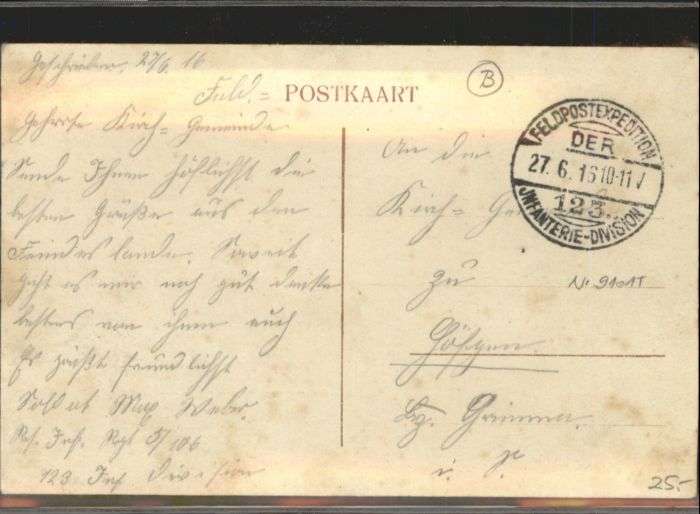 Geschrieben, 27/6. 16
Feld.= POSTKAART
B
Geehrte Kirch=Gemeinde
Sende Ihnen höflichst die
besten Grüße aus den
Feindeslande. Soweit
geht es mir noch gut denke
bestes von ihnen auch
Es grüßt freundlichst
Soldat Max Weber.
Res. Inf. Regt 5/106
123 Inf Division
FELDPOSTEXPEDITION
DER
27. 6. 16 10-11 V
123.
INFANTERIE-DIVISION
An die
Kirch=Ge
zu
N: 9101T
Höfgen
Bz. Grimma.
i. S.
25.-